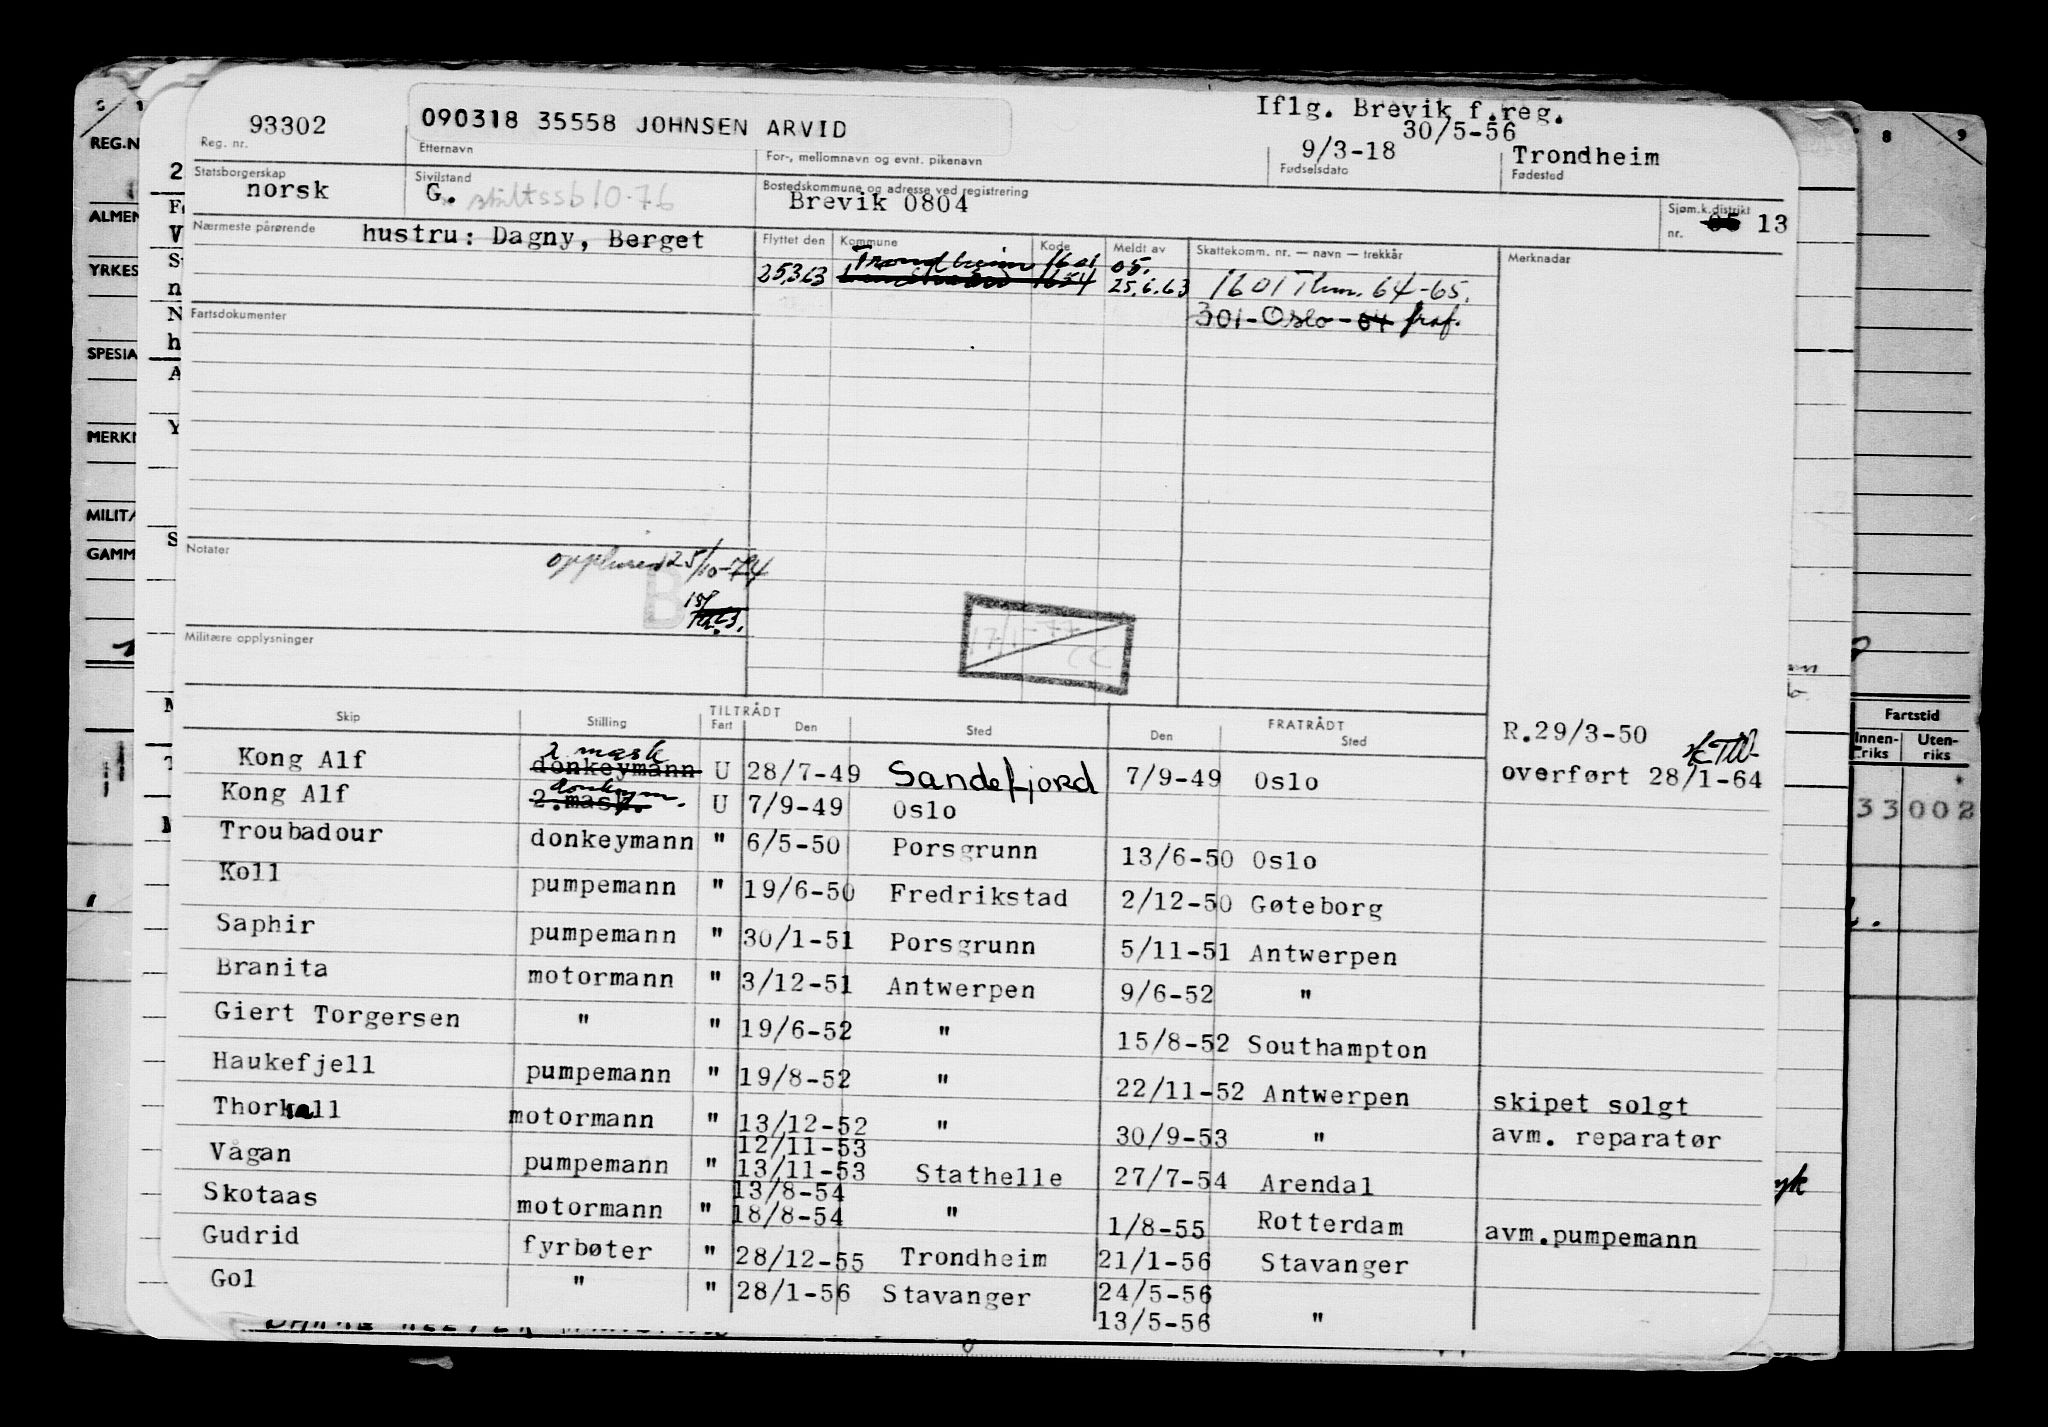 93302
090318 35558 JOHNSEN ARVID
Iflg. Brevik f.reg.
30/5-56
9/3-18
Trondheim
Reg. nr.
Etternavn
For-, mellomnavn og evnt. pikenavn
Fødselsdato
Fødested
Statsborgerskap
norsk
Sivilstand
G.
Bostedskommune og adresse ved registrering
Brevik 0804
Sjøm.k.distrikt
nr. 05 13
Nærmeste pårørende
hustru: Dagny, Berget
Flyttet den Kommune Kode Meldt av
Skattekomm. nr. — navn — trekkår
Merknader
25363 Trondheim 1601 05.
1654 25.6.63
1601 Thm. 64-65.
301-Oslo-64
Fartsdokumenter
Notater
25/10-74
B
Militære opplysninger
17/1-77
Skip Stilling TILTRÅDT Fart Den Sted FRATRÅDT Den Sted
R.29/3-50
overført 28/1-64
2 mask
Kong Alf donkeymann U 28/7-49 Sandefjord 7/9-49 Oslo
donkeym.
Kong Alf 2.mask. U 7/9-49 Oslo
Troubadour donkeymann " 6/5-50 Porsgrunn 13/6-50 Oslo
Koll pumpemann " 19/6-50 Fredrikstad 2/12-50 Gøteborg
Saphir pumpemann " 30/1-51 Porsgrunn 5/11-51 Antwerpen
Branita motormann " 3/12-51 Antwerpen 9/6-52 "
Giert Torgersen " " 19/6-52 " 15/8-52 Southampton
Haukefjell pumpemann " 19/8-52 " 22/11-52 Antwerpen skipet solgt
Thorkall motormann " 13/12-52 " 30/9-53 " avm. reparatør
12/11-53
Vågan pumpemann " 13/11-53 Stathelle 27/7-54 Arendal
13/8-54
Skotaas motormann " 18/8-54 " 1/8-55 Rotterdam avm.pumpemann
Gudrid fyrbøter " 28/12-55 Trondheim 21/1-56 Stavanger
Gol " " 28/1-56 Stavanger 24/5-56
13/5-56 "
REG.N
ALMEN
YRKES
SPESIA
MERK
MILITA
GAMM
8 9
Fartstid
Innen-
riks
Uten-
riks
33 002